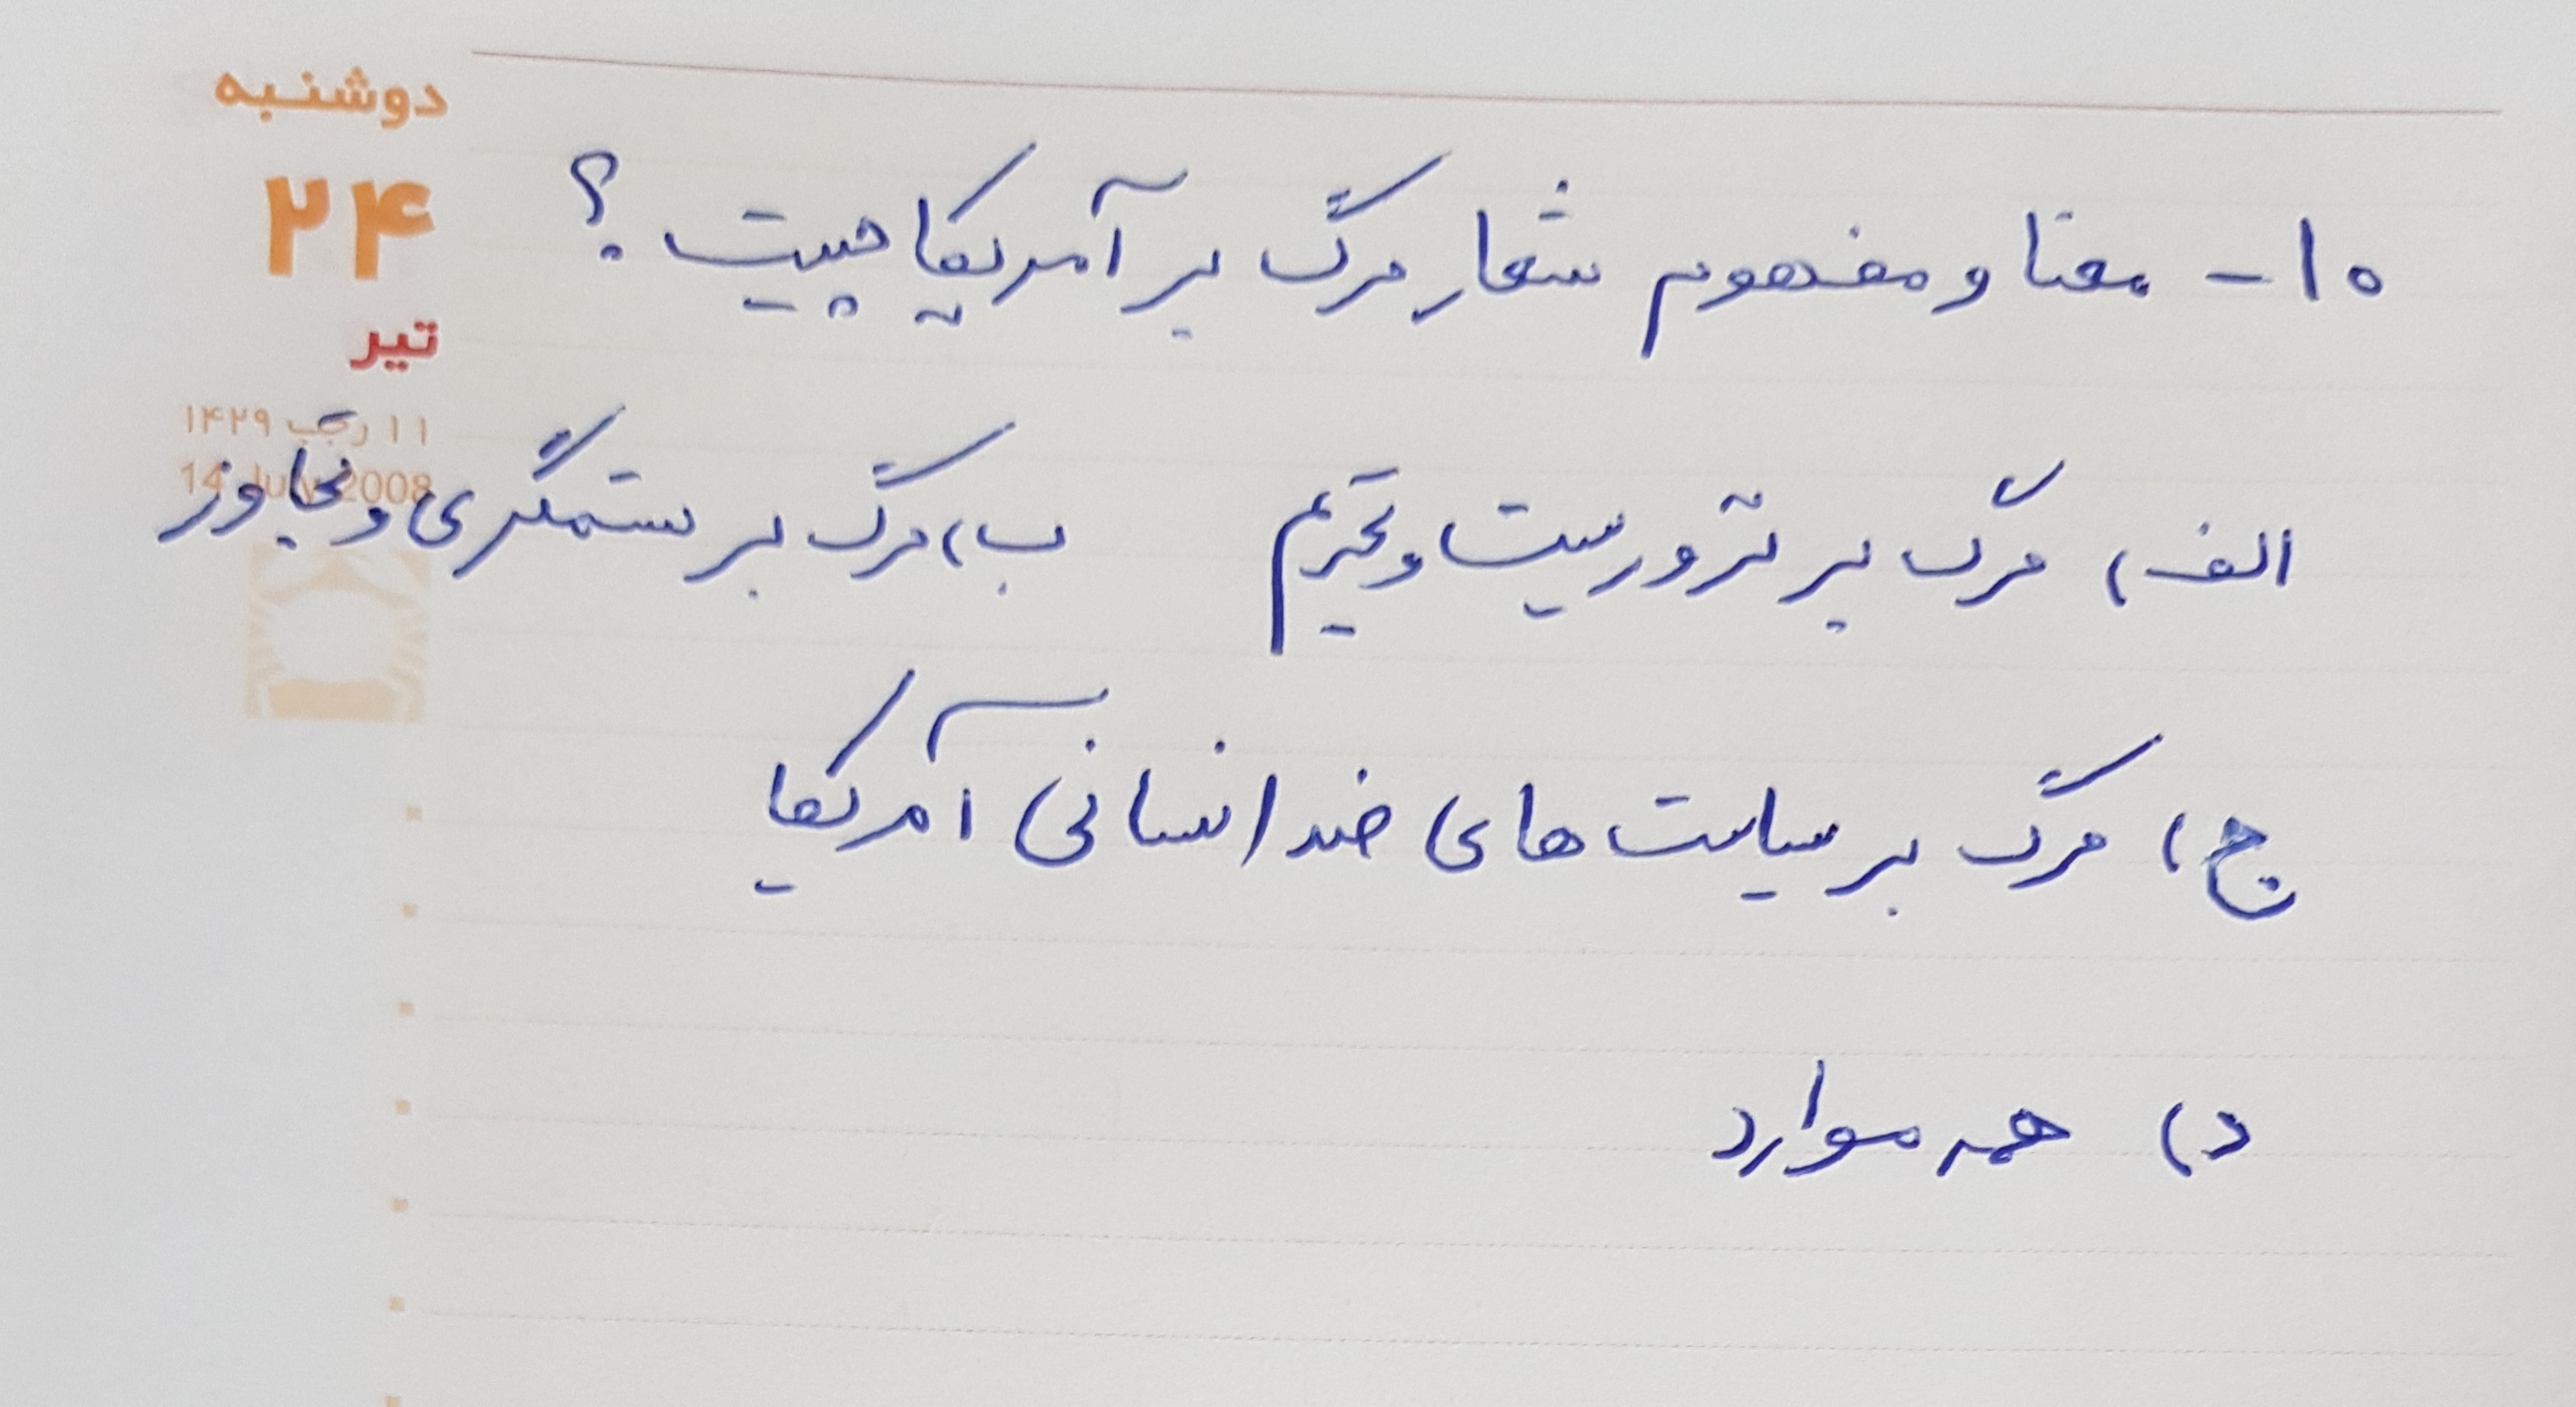 دوشنبه
۲۴
تیر
۱۱ رجب ۱۴۲۹
14 July 2008
۱۰- معنا و مفهوم شعار مرگ بر آمریکا چیست ؟
الف) مرگ بر تروریست و تحریم ب) مرگ بر ستمگری و تجاوز
ج) مرگ بر سیاست های ضد انسانی آمریکا
د) همه موارد